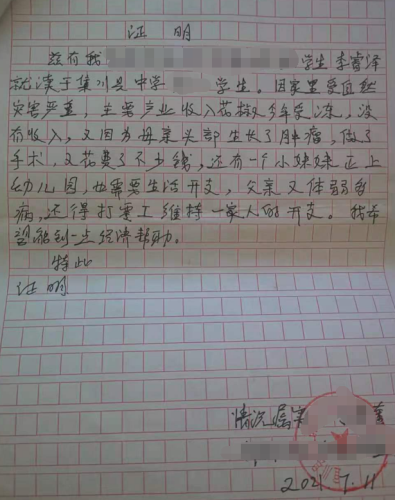 证 明
兹有我 学生 李睿泽
就读于集川县中学 学生。因家里受自然
灾害严重，主要产业收入花椒多年受冻，没
有收入，又因为母亲头部生长了肿瘤，做了
手术，又花费了不少钱，还有一个小妹妹正上
幼儿园，也需要生活开支，父亲又体弱多
病，还得打零工维持一家人的开支。我希
望能到一点经济帮助。
特此
证 明
情况属实
2021.7.11